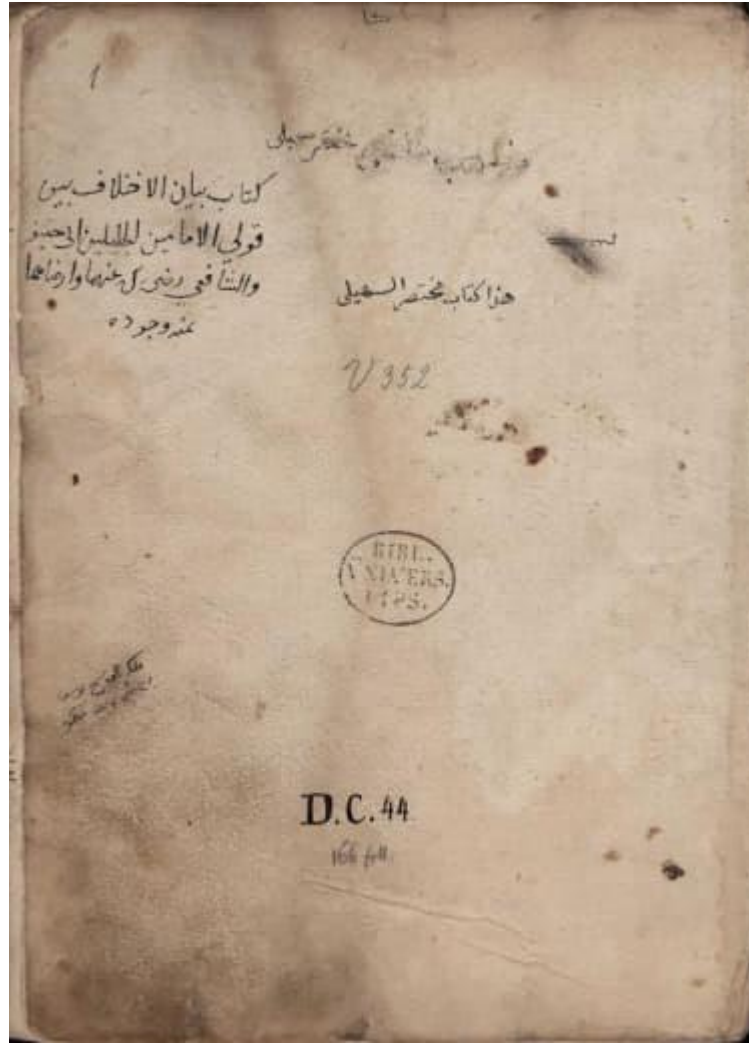 1
مختصر سهيلى
كتاب بيان الاختلاف بين
قولي الامامين الجليلين ابى حنيفه
والشافعي رضى الله عنهما وارضاهما
بمنه وجوده
هذا كتاب مختصر السهيلى
V 352
BIBL.
VNIVERS.
LIPS.
D.C. 44
166 foll.